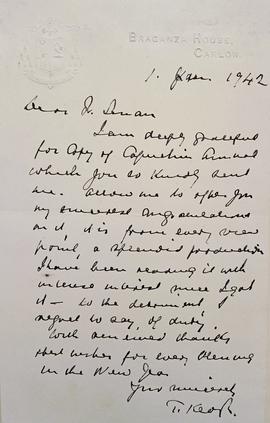 BRAGANZA HOUSE,
CARLOW.
1. Jan. 1942
Dear Fr. Senan
I am deeply grateful
for Copy of Capuchin Annual
which you so kindly sent
me. Allow me to offer you
my sincerest congratulations
on it, it is from every view
point, a splendid production
I have been reading it with
intense interest since I got
it — to the detriment, I
regret to say, of duty.
With renewed thanks
& best wishes for every blessing
in the New Year
Yrs sincerely
T. Keogh.